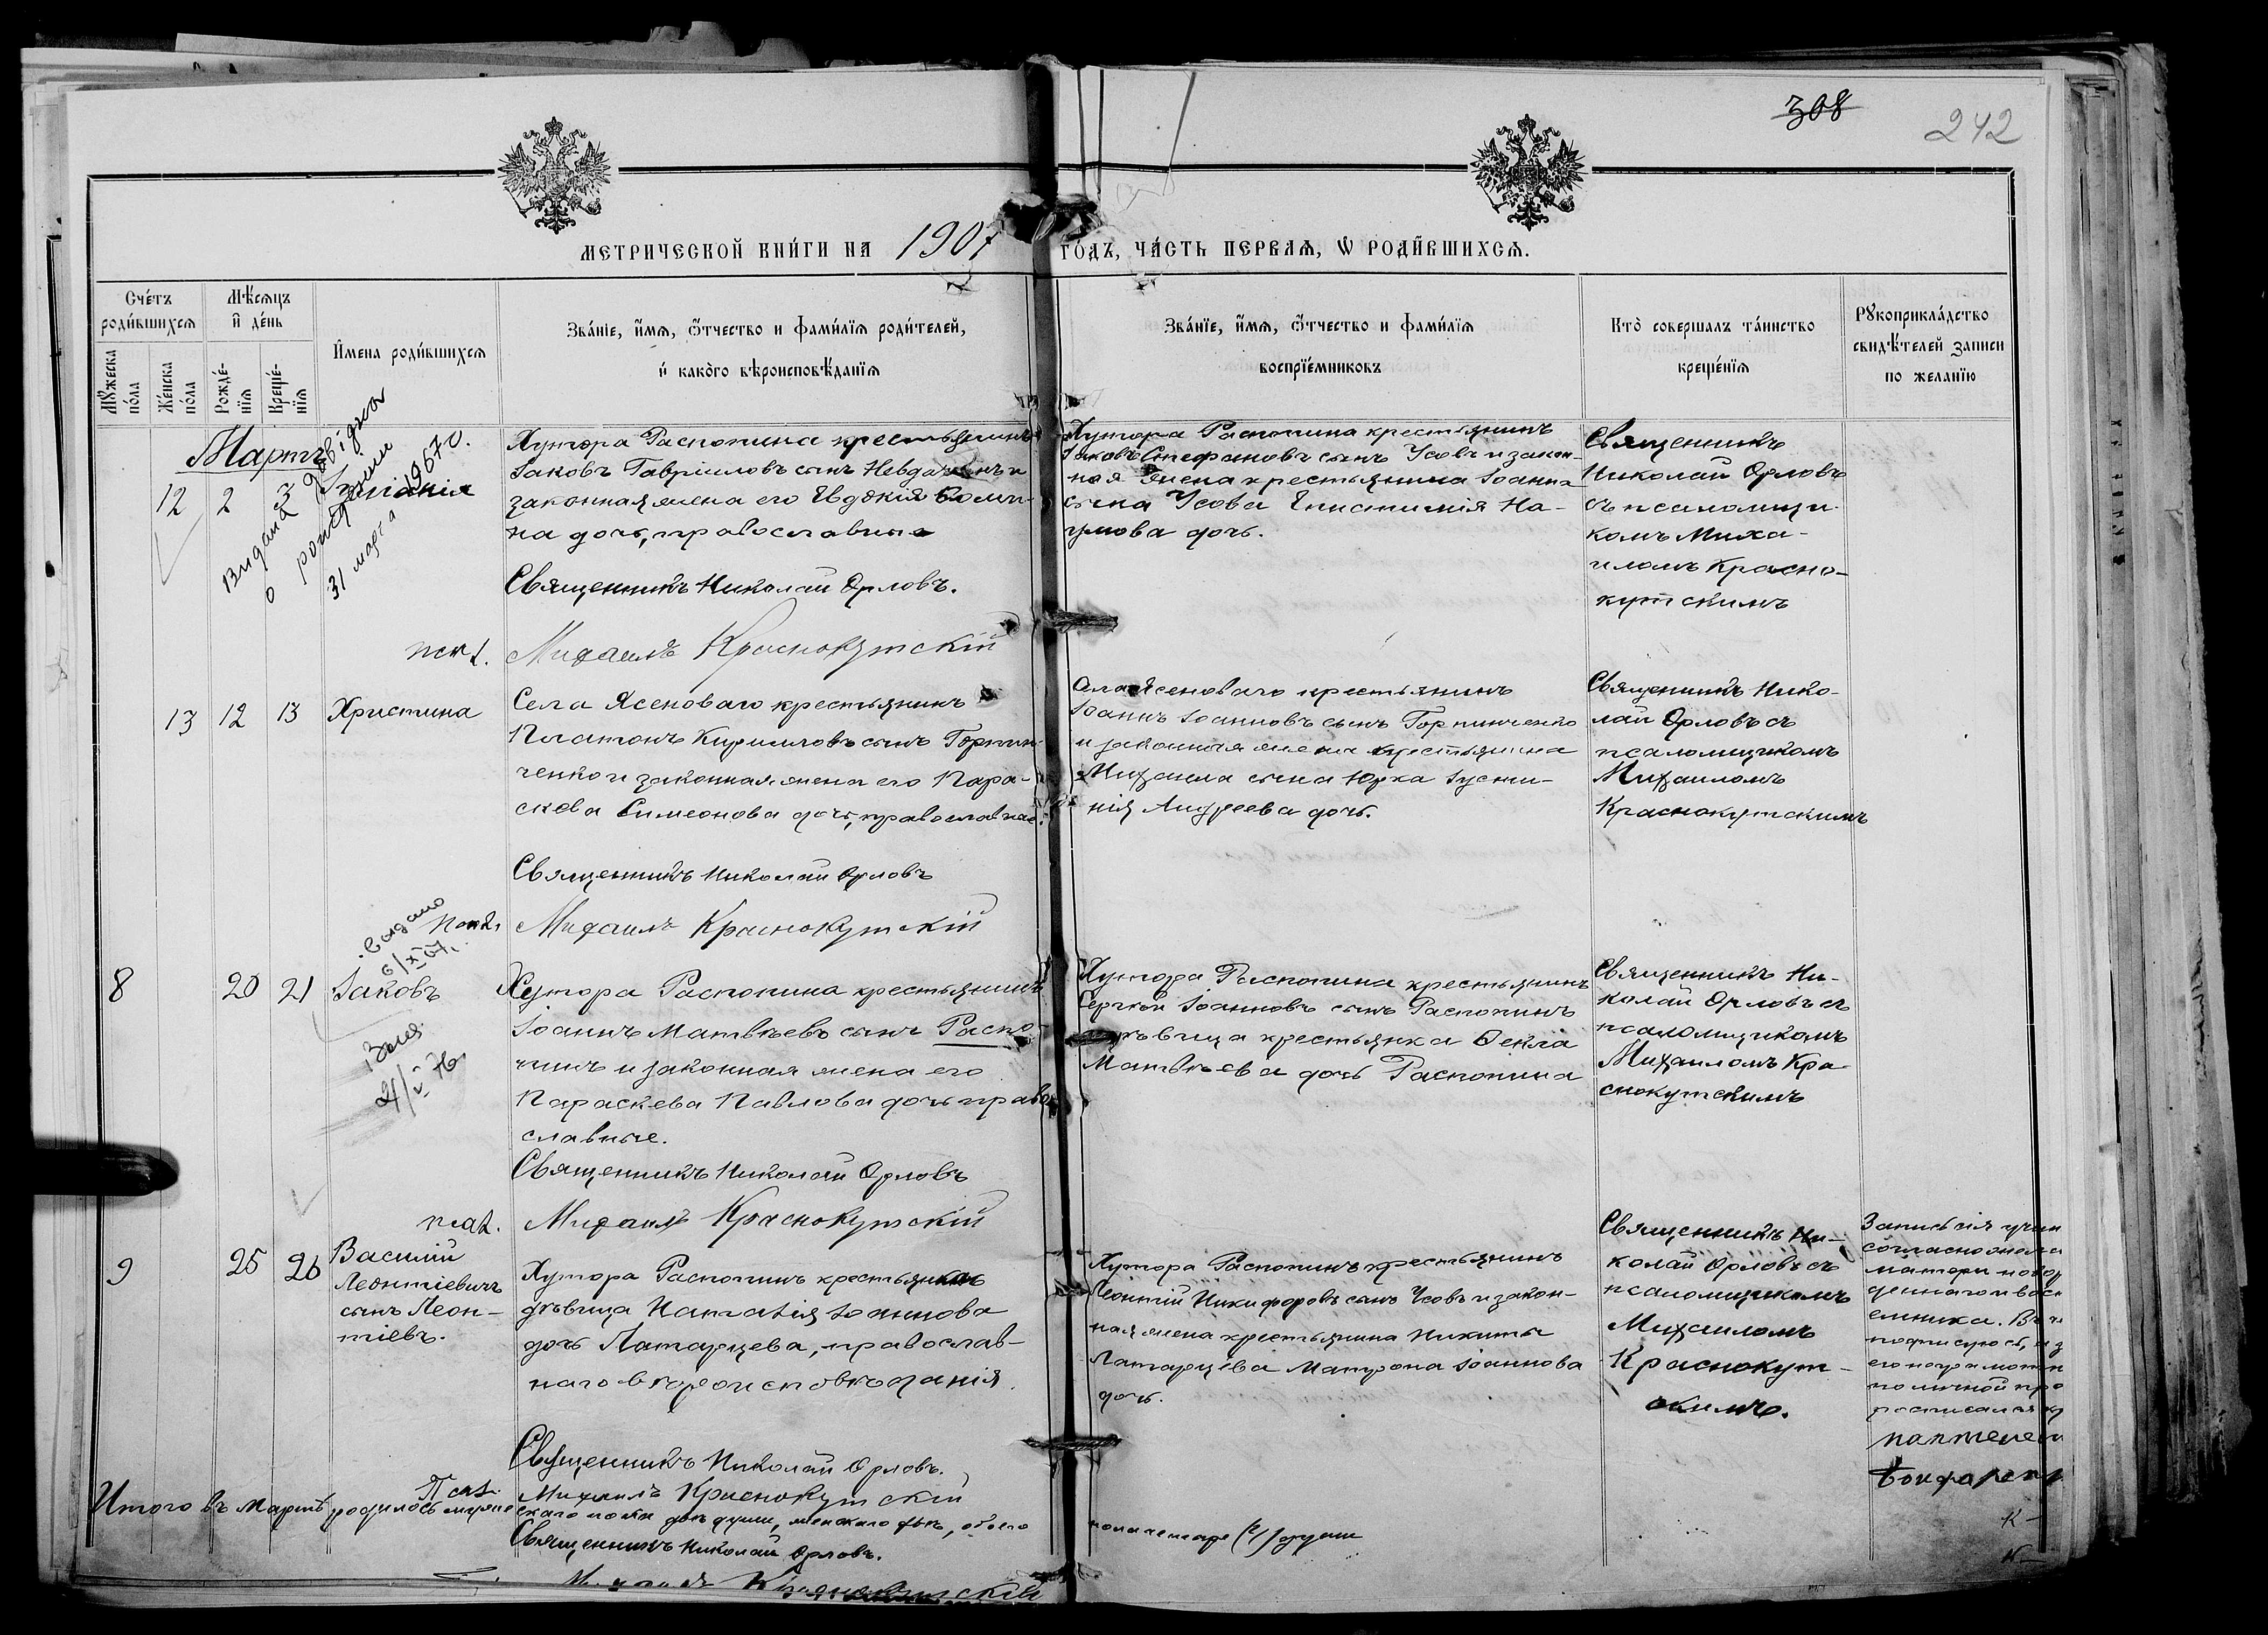 308
242
МЕТРИЧЕСКОЙ КНИ́ГИ НА 1907 ГО́ДЪ, ЧА́СТЬ ПЕРВАѦ, Ѡ РОДИ́ВШИХСѦ.
Сче́тъ роди́вшихсѧ
Мѣ́сѧцъ и҆ де́нь
И҆мена роди́вшихсѧ
Зва́нїе, и҆́мѧ, ѻ҆́тчество и фами́лїѧ роди́телей,
и҆ како́гѡ вѣроисповѣ́данїѧ
Зва́нїе, и҆́мѧ, ѻ҆́тчество и фами́лїѧ
воспрїе́мниковъ
Кто̀ совершалъ та́инство
креще́нїѧ
Рꙋкоприкла́дство
свидѣ́телей записи
по жела́нїю
Мꙋ́жеска по́ла
Же́нска по́ла
Рожде́нїѧ
Креще́нїѧ
Мартъ
12 2 3
Видана довідка
о рожденні
31 марта 1967 г.
Хутора Распопина крестьянинъ
Іаковъ Гавріиловъ сынъ
законная жена его Евдокія
на дочь, православные
Священникъ Николай Орловъ.
псал. Михаилъ Краснокутскій
Хутора Распопина крестьянинъ
Іаковъ Стефановъ сынъ Усовъ и закон-
ная жена крестьянина Іоанна
Усова Епистимія На-
умова дочь.
Священникъ
Николай Орловъ
съ псаломщи-
комъ Миха-
иломъ Красно-
кутскимъ
13 12 13 Христина
Села Ясеноваго крестьянинъ
Платонъ Кирилловъ сынъ Горпин-
ченко и законная жена его Пара-
скева Симеонова дочь, православные.
Священникъ Николай Орловъ
псал. Михаилъ Краснокутскій
Села Ясеноваго крестьянинъ
Іоаннъ Іоанновъ сынъ Горпинченко
и законная жена крестьянина
Михаила сына Юрка Іусти-
нія Андреева дочь.
Священникъ Нико-
лай Орловъ съ
псаломщикомъ
Михаиломъ
Краснокутскимъ
видано
6/X 07 г.
8 20 21 Іаковъ
21/V 76
Хутора Распопина крестьянинъ
Іоаннъ Матвѣевъ сынъ Распо-
пинъ и законная жена его
Параскева Павлова дочь право-
славные.
Священникъ Николай Орловъ
псал. Михаилъ Краснокутскій
Хутора Распопина крестьянинъ
Сергѣй Іоанновъ сынъ Распопинъ
дѣвица крестьянка Ѳекла
Матвѣева дочь Распопина
Священникъ Ни-
колай Орловъ съ
псаломщикомъ
Михаиломъ Кра-
снокутскимъ
9 25 26 Василій
Леонтіевичъ
сынъ Леон-
тіевъ.
Хутора Распопинъ крестьянка
дѣвица Наталія Іоаннова
дочь Латарцева, православ-
наго вѣроисповѣданія.
Священникъ Николай Орловъ.
Псал. Михаилъ Краснокутскій
Хутора Распопинъ крестьянинъ
Леонтій Никифоровъ сынъ Усовъ и закон-
ная жена крестьянина Никиты
Латарцева Матрона Іоаннова
дочь.
Священникъ Ни-
колай Орловъ съ
псаломщикомъ
Михаиломъ
Краснокут-
скимъ.
Запись сія учин
согласно
матери новор
деннаго и вос
емника.
по личной про
росписался кр
Итого въ мартѣ родилось муже
скаго пола двѣ души, женскаго двѣ, обоего
пола четыре (4) души
Священникъ Николай Орловъ.
Михаилъ Краснокутскій